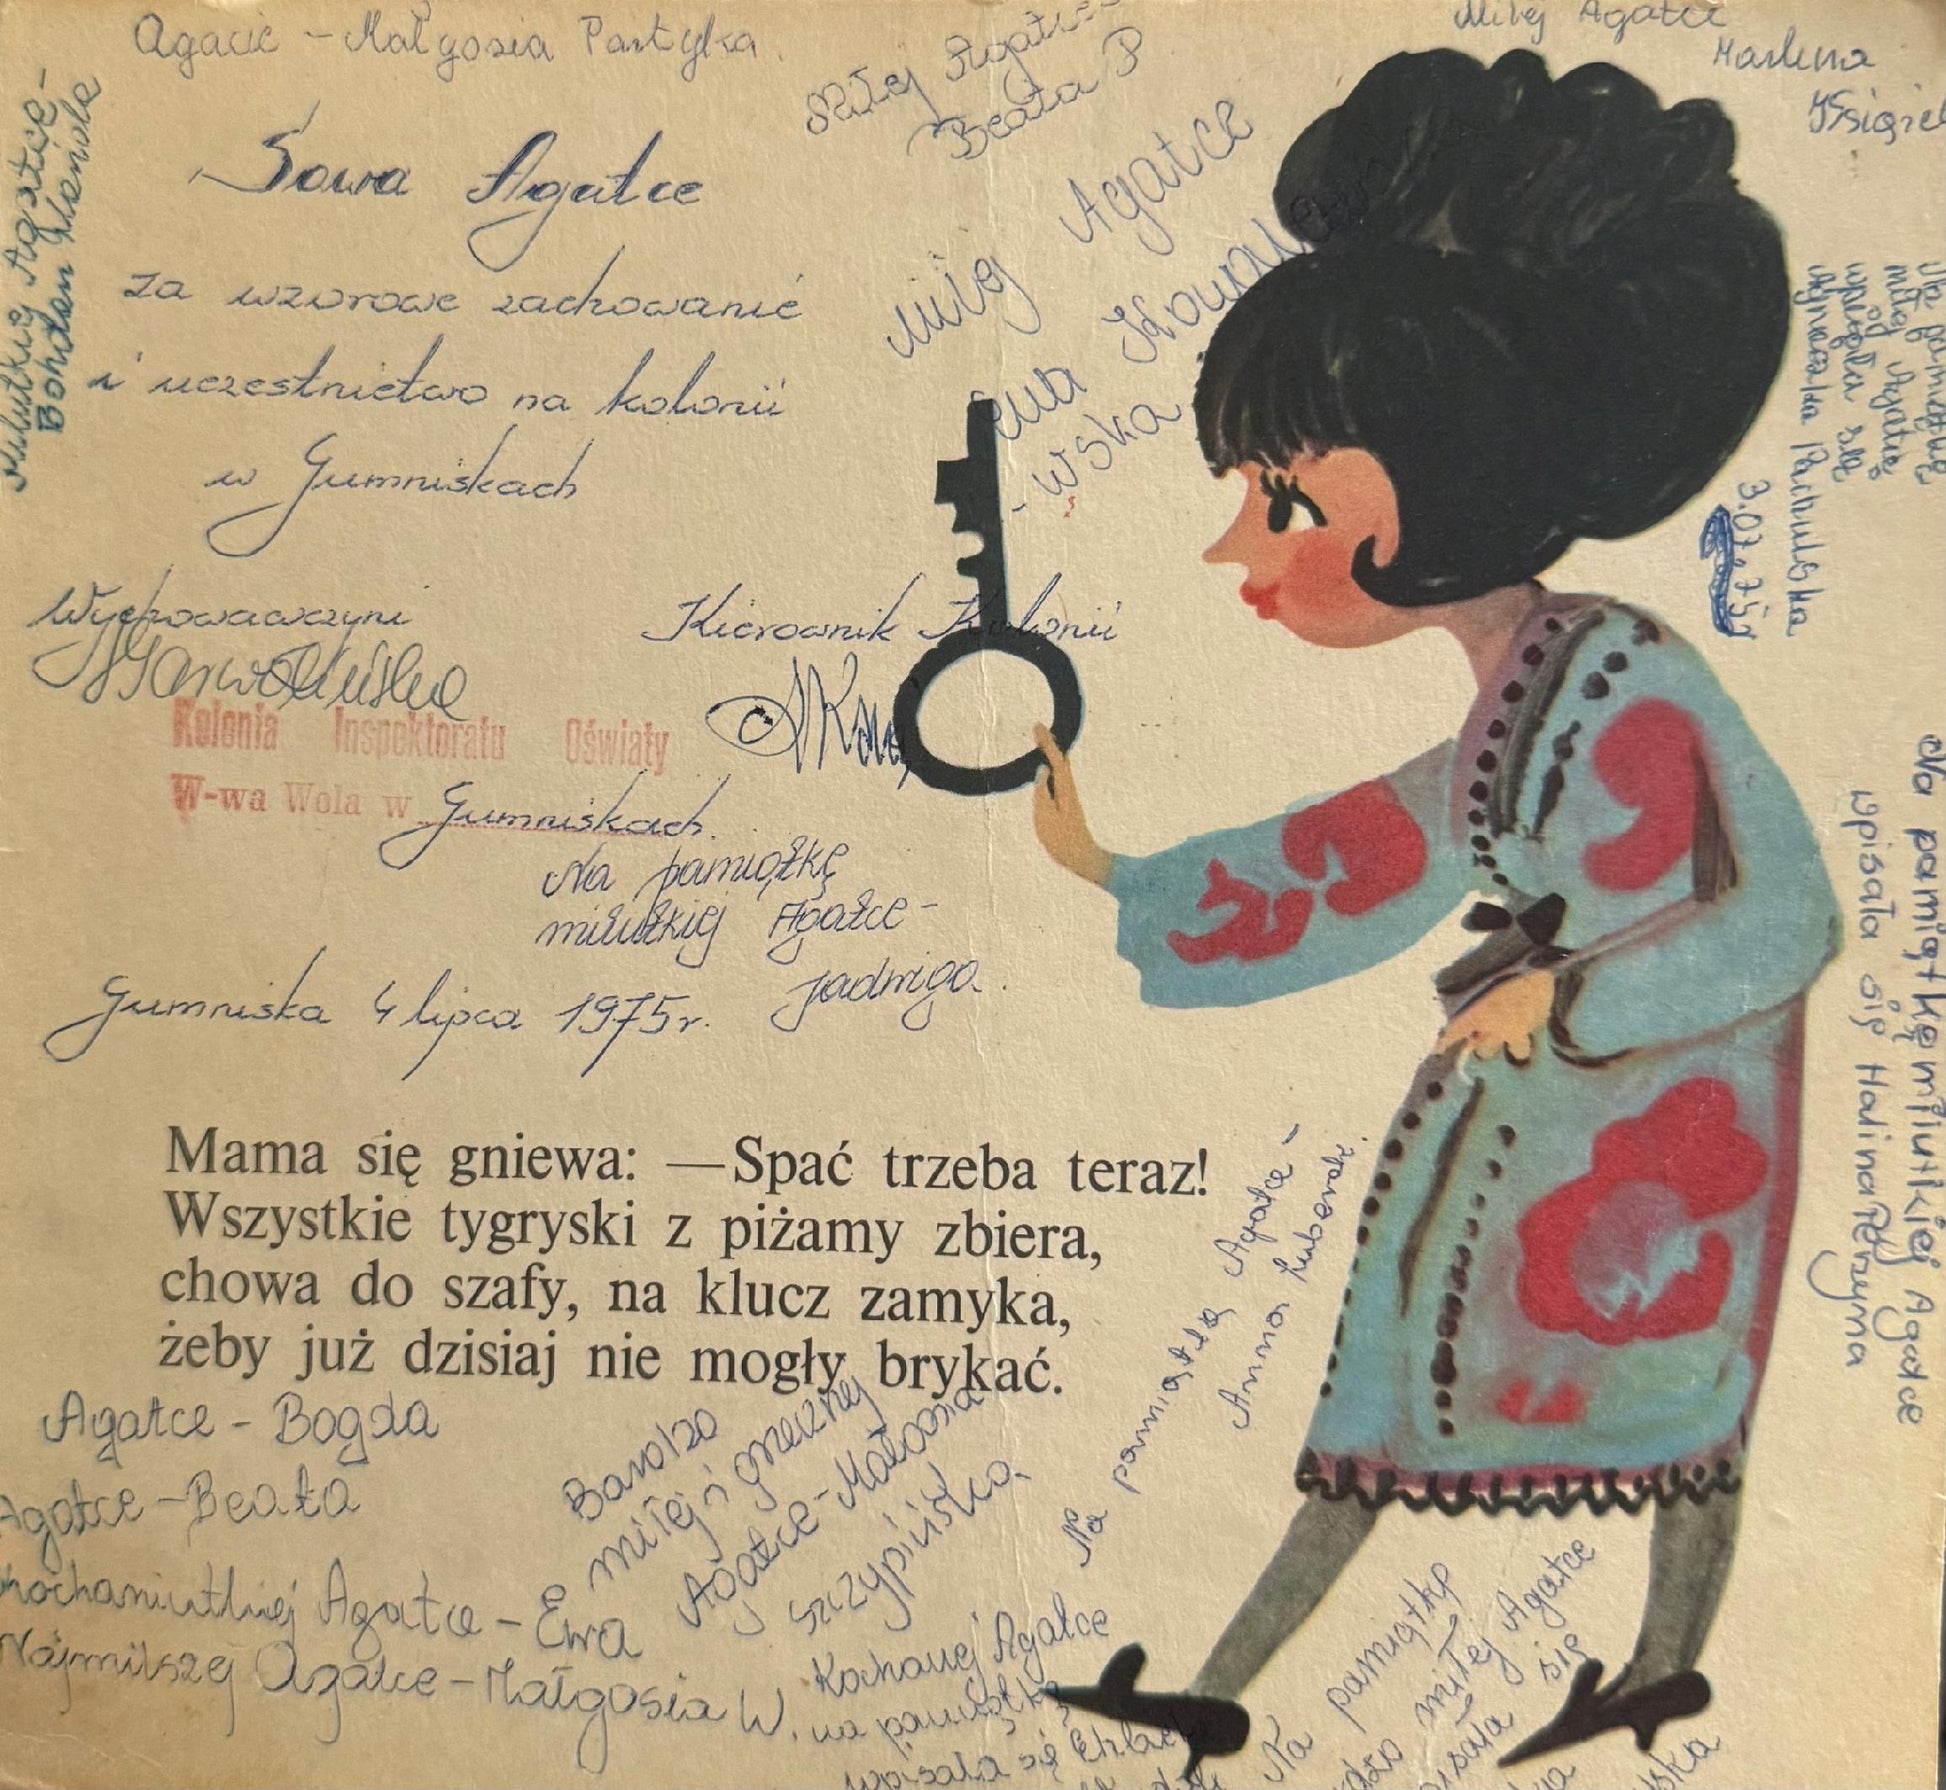 Agacie - Małgosia Partyka.
Miłej Agatce
Beata P
Miłej Agatce
Marlena
Księżel
Milutkiej Agatce -
Bohdan
Sowa Agatce
za wzorowe zachowanie
i uczestnictwo na kolonii
w Gumniskach
Miłej Agatce
Ewa Kowale
- wska
miłej Agatce
wpisała się
Agnieszka Pachulska
3.07.75r
Wychowawczyni
Kierownik Kolonii
Kolonia Inspektoratu Oświaty
W-wa Wola w Gumniskach.
Na pamiątkę
milutkiej Agatce -
Jadwiga.
Gumniska 4 lipca 1975r.
Na pamiątkę milutkiej Agatce
wpisała się Halina Perzyna
Mama się gniewa: —Spać trzeba teraz!
Wszystkie tygryski z piżamy zbiera,
chowa do szafy, na klucz zamyka,
żeby już dzisiaj nie mogły brykać.
Na pamiątkę Agatce -
Anna
Agatce - Bogda
Agatce - Beata
kochaniutkiej Agatce - Ewa
Najmilszej Agatce - Małgosia W.
Bardzo
miłej i grzecznej
Agatce - Małgosia
Szczypińska.
Kochanej Agatce
na pamiątkę
wpisała się
Na pamiątkę
miłej Agatce
się